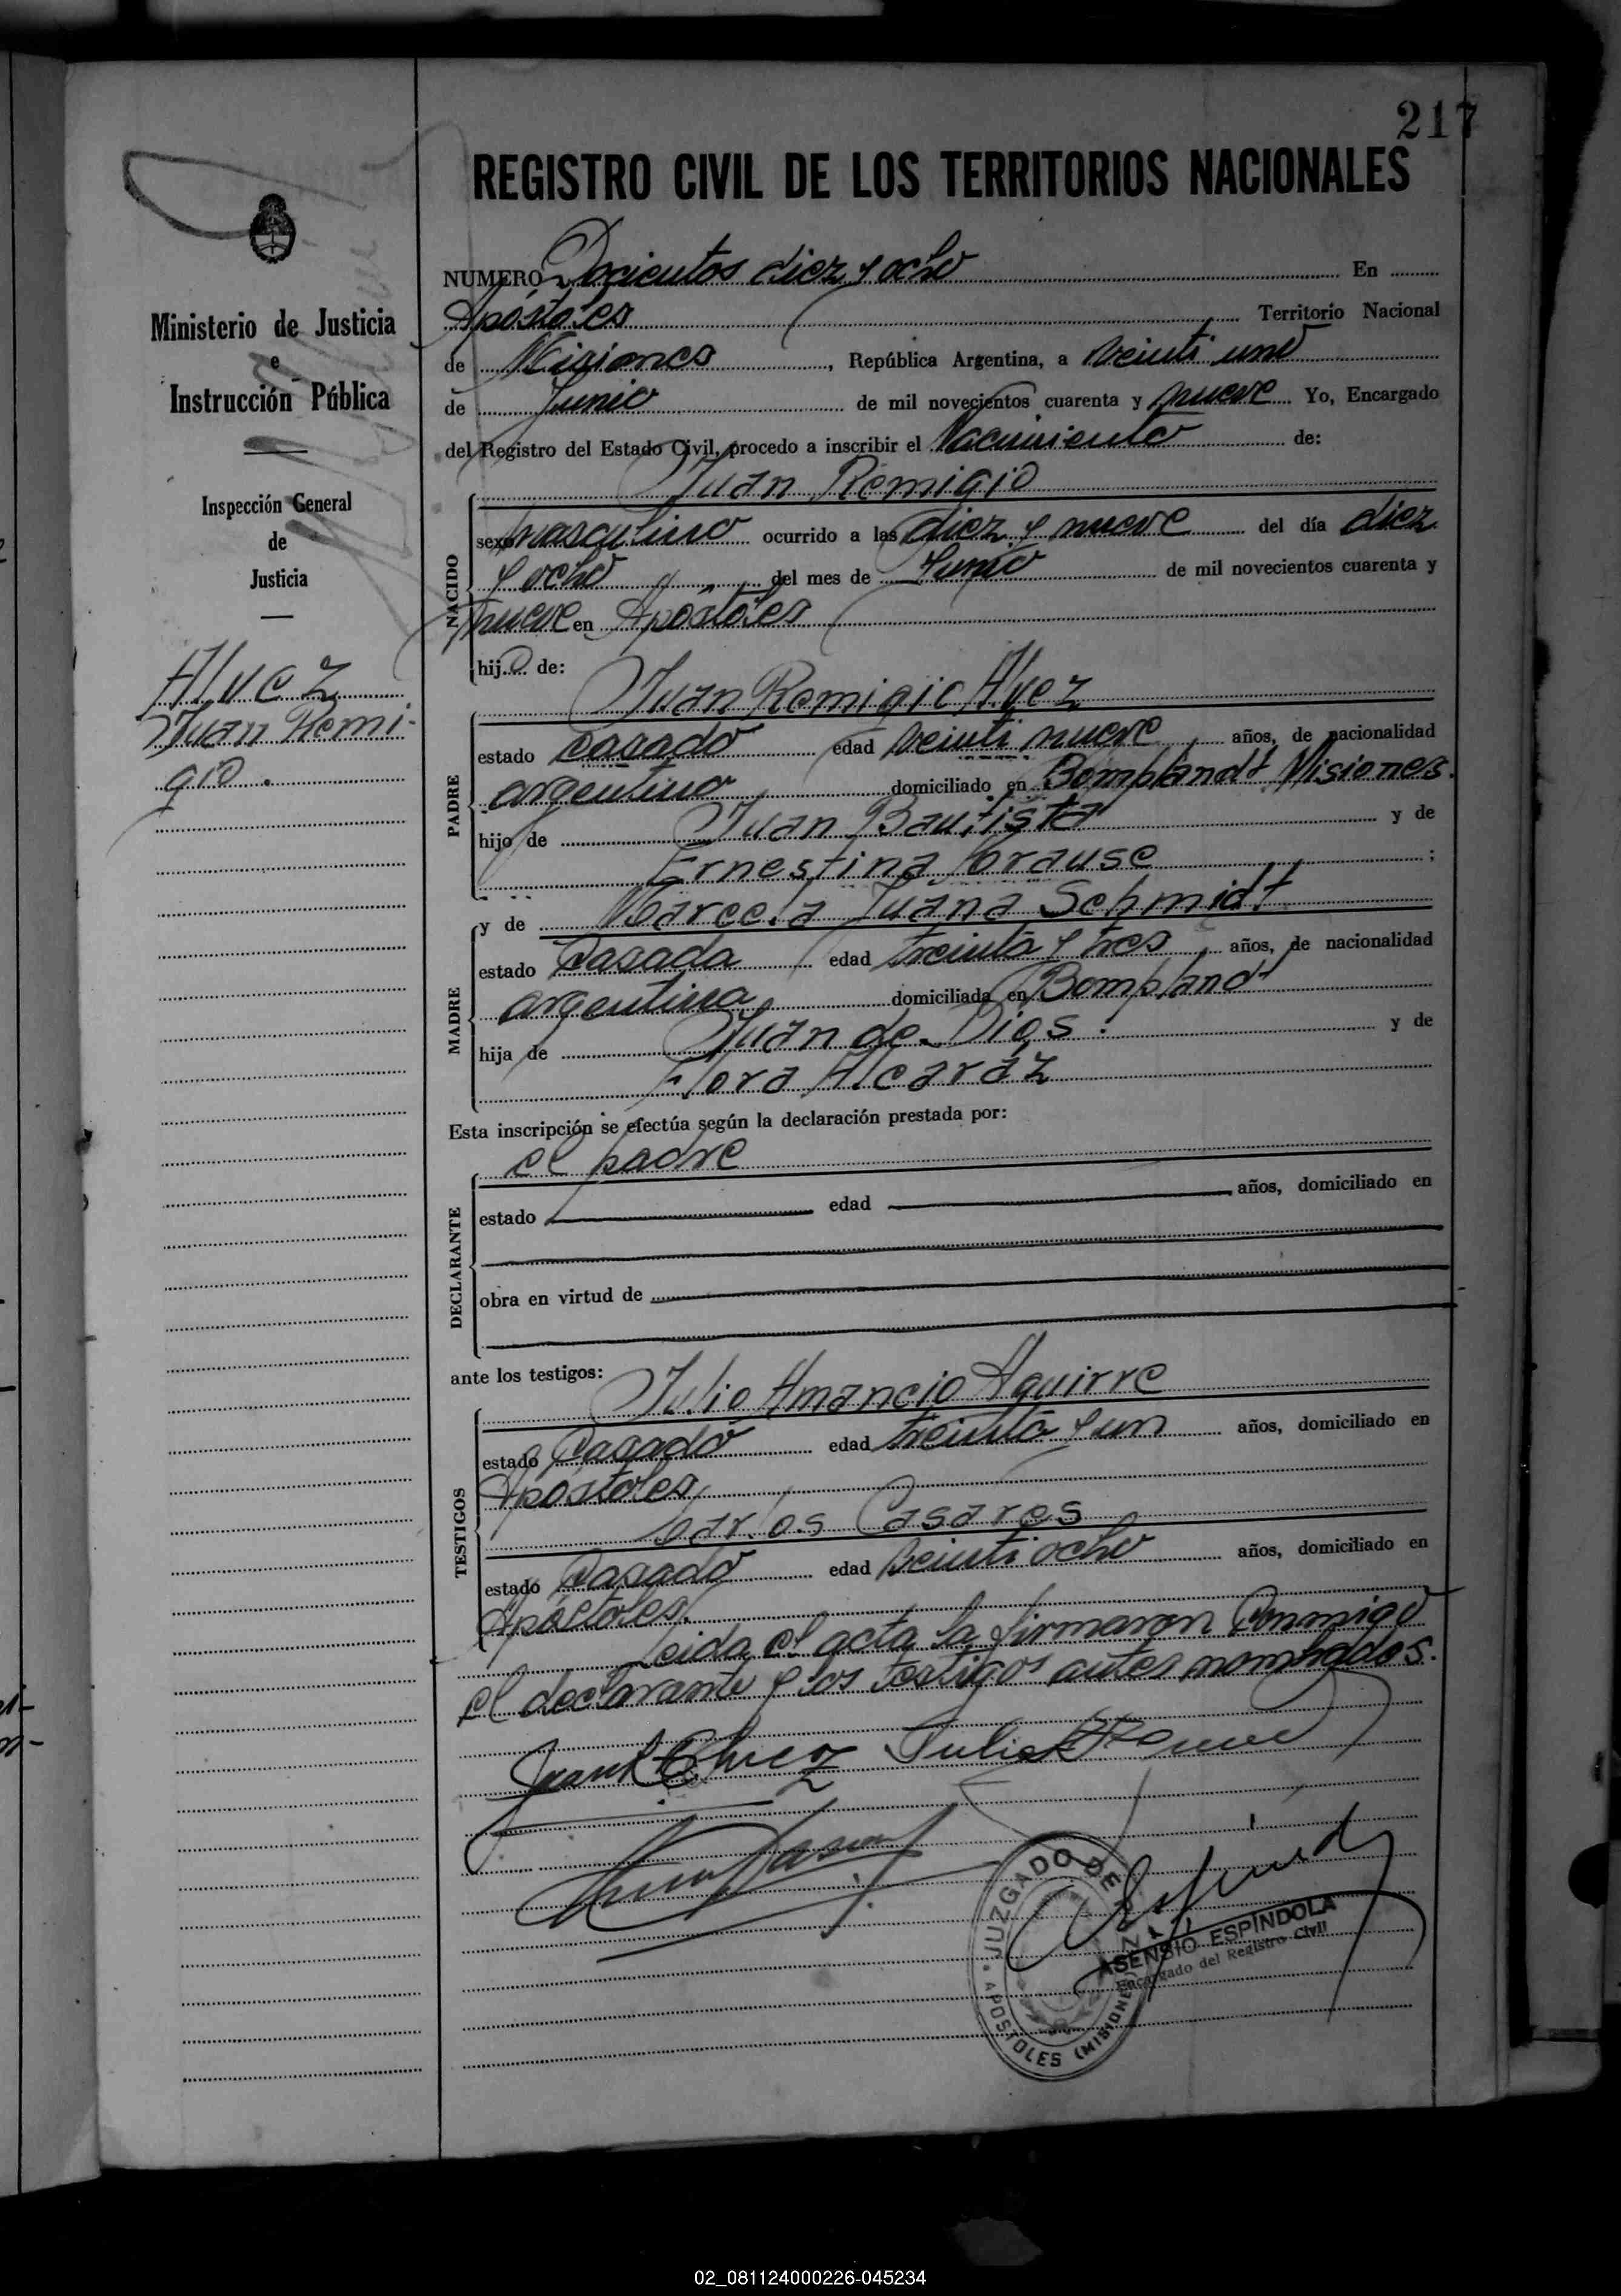 217
REGISTRO CIVIL DE LOS TERRITORIOS NACIONALES
NUMERO Docientos diez y ocho En
Apóstoles Territorio Nacional
de Misiones, República Argentina, a veinti uno
de Junio de mil novecientos cuarenta y nueve Yo, Encargado
del Registro del Estado Civil, procedo a inscribir el Nacimiento de:
Juan Remigio
NACIDO
sexo masculino ocurrido a las diez y nueve del día diez
y ocho del mes de Junio de mil novecientos cuarenta y
nueve en Apóstoles
hijo de:
Juan Remigio Alvez
PADRE
estado casado edad veinti nueve años, de nacionalidad
argentino domiciliado en Bomplandt Misiones.
hijo de Juan Bautista y de
Ernestina Krause;
MADRE
y de Marcela Juana Schmidt
estado Casada edad treinta y tres años, de nacionalidad
argentina domiciliada en Bompland
hija de Juan de Dios y de
Flora Alcaraz
Esta inscripción se efectúa según la declaración prestada por:
el padre
DECLARANTE
estado edad años, domiciliado en
obra en virtud de
ante los testigos:
Julio Amancio Aguirre
TESTIGOS
estado Casado edad treinta y un años, domiciliado en
Apóstoles,
Carlos Casares
estado Casado edad veinti ocho años, domiciliado en
Apóstoles.
Leida el acta la firmaron conmigo
el declarante y los testigos antes nombrados.
JUZGADO DE PAZ
APOSTOLES (MISIONES)
ASENSIO ESPINDOLA
Encargado del Registro Civil
Ministerio de Justicia
e
Instrucción Pública
Inspección General
de
Justicia
Alvez
Juan Remi-
gio.
02_081124000226-045234